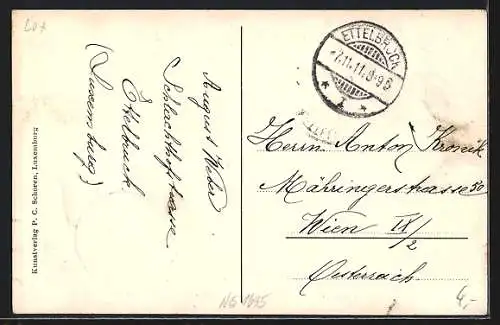 Lux
August Weber
Schlachthofstrasse
Ettelbruck.
(Luxemburg)
Kunstverlag P. C. Schoren, Luxemburg
ETTELBRÜCK
7.11.11.8-9S
* 1 *
Herrn Anton Kronik
Mähringerstrasse 50
Wien IX/2
Oesterreich
NG 1695
4,-